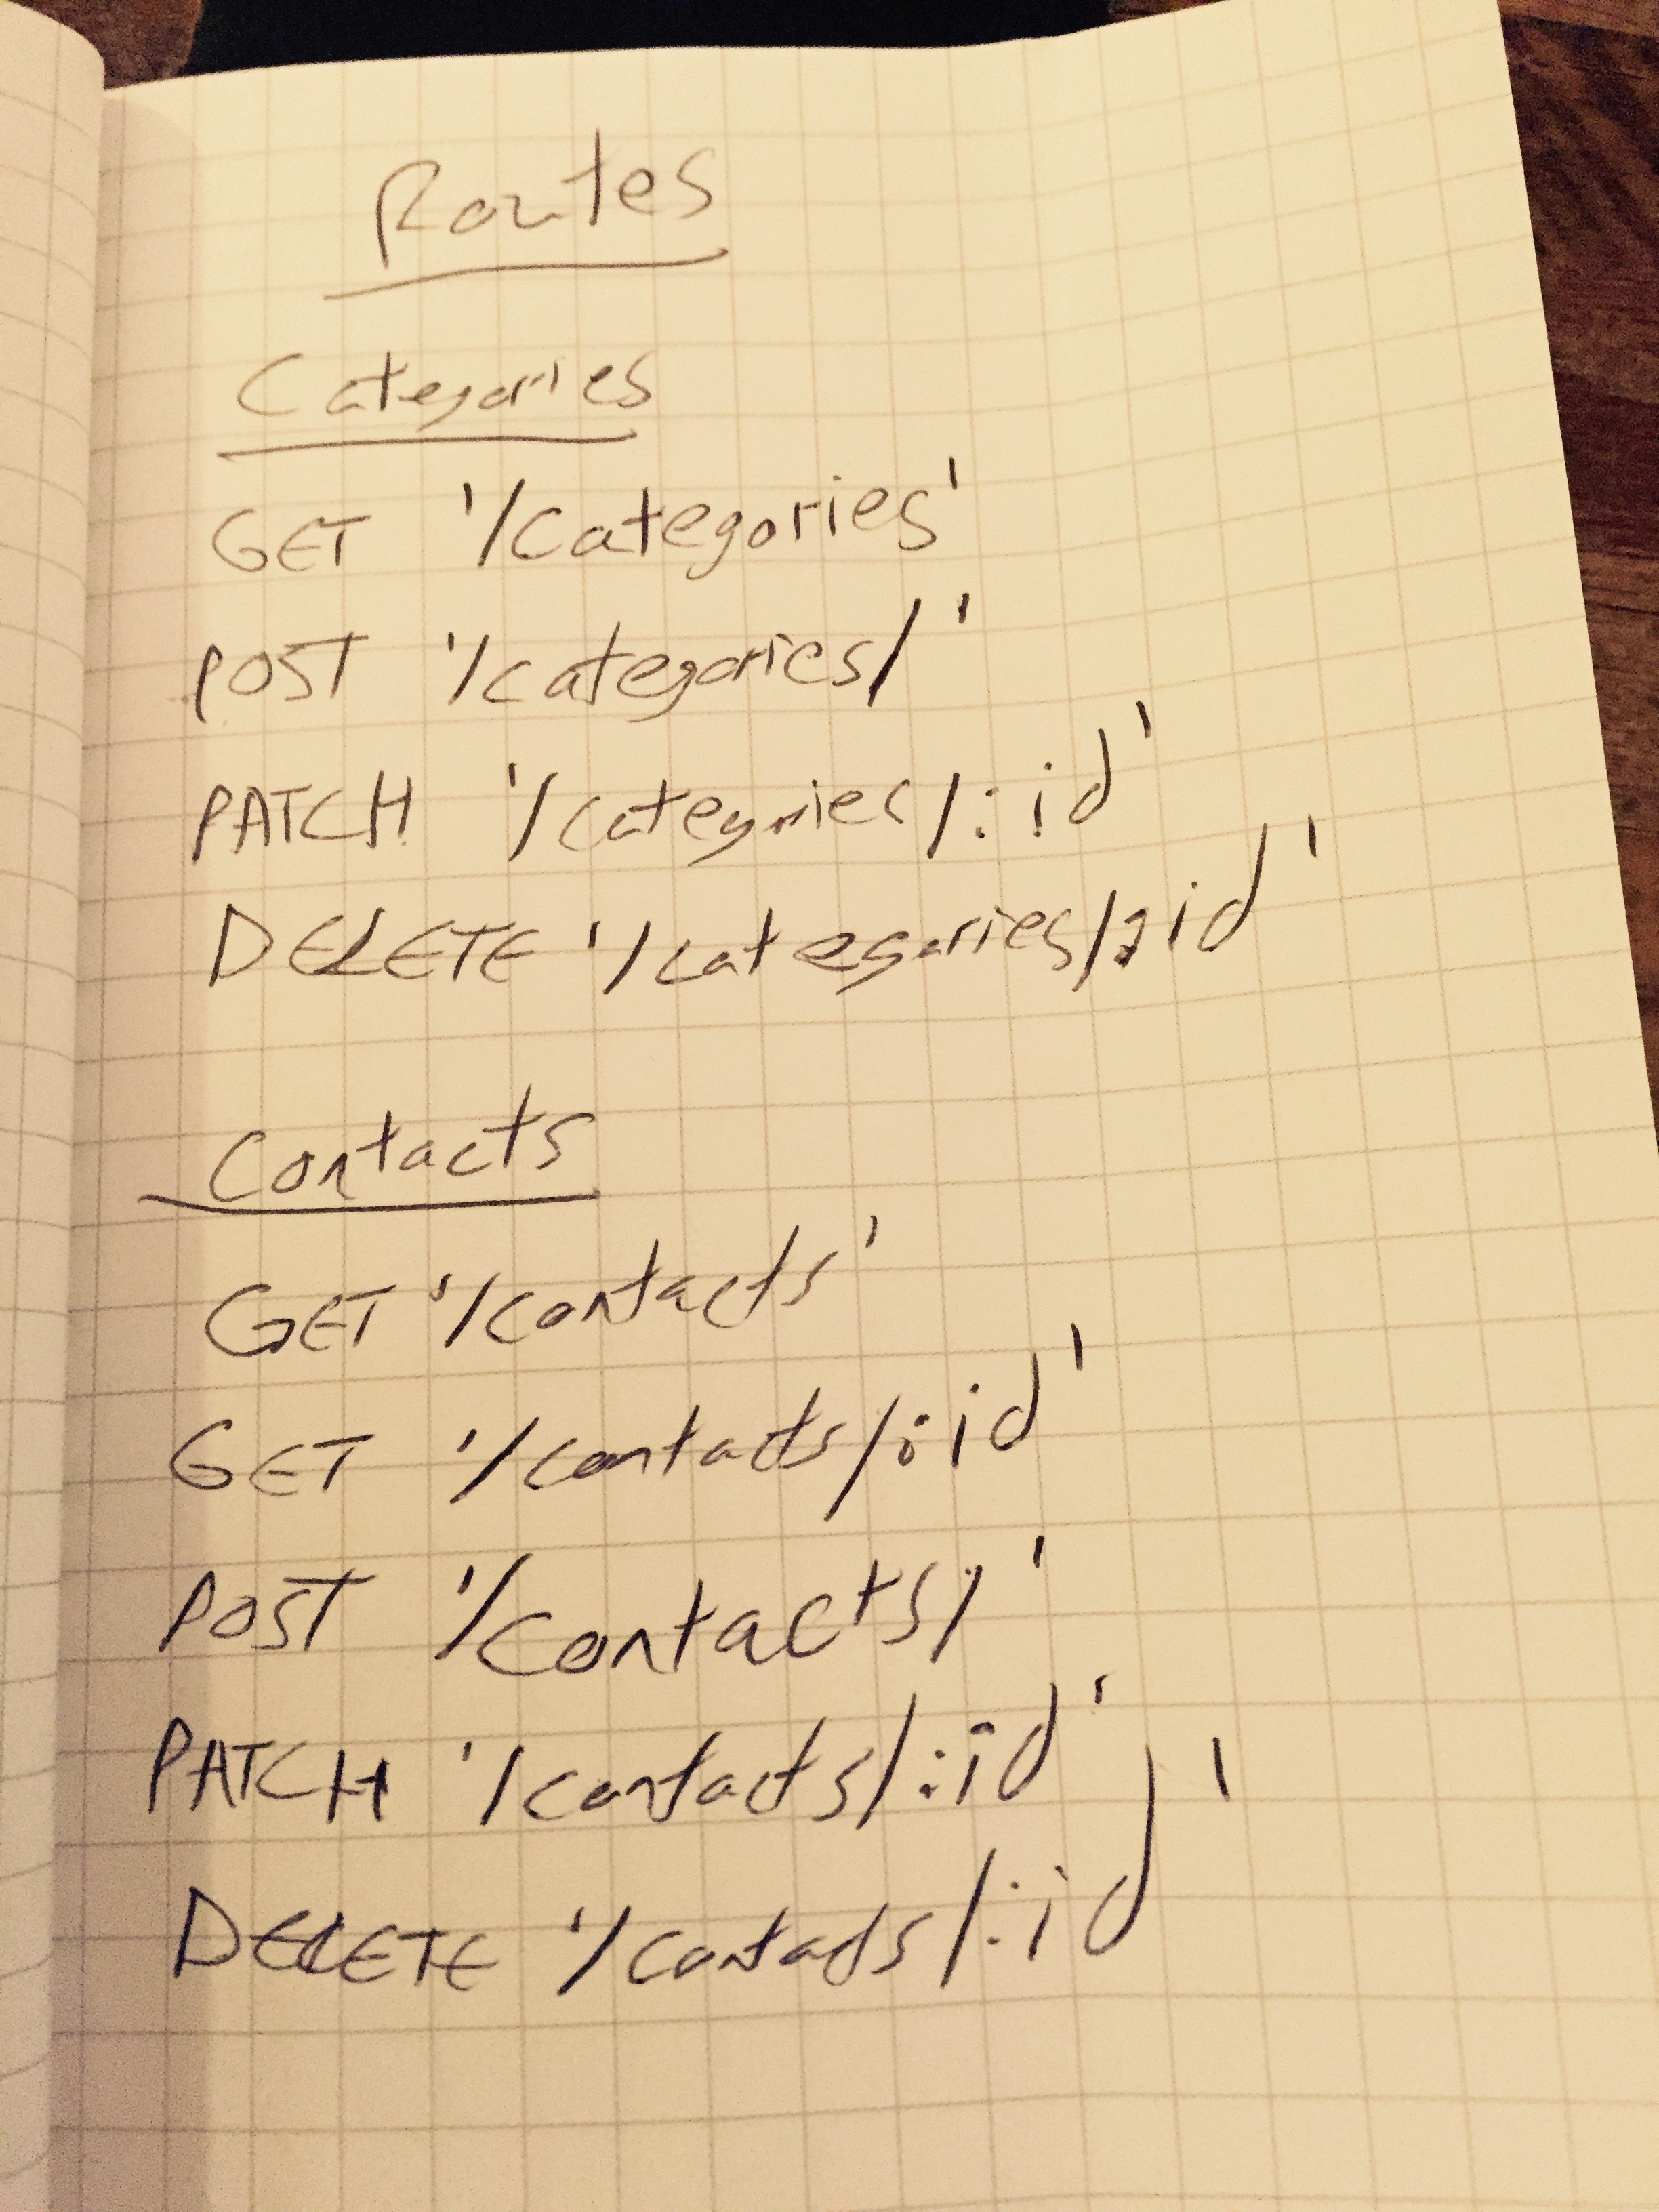 Routes
Categories
GET '/categories'
POST '/categories/'
PATCH '/categories/:id'
DELETE '/categories/:id'
Contacts
GET '/contacts'
GET '/contacts/:id'
POST '/contacts/'
PATCH '/contacts/:id'
DELETE '/contacts/:id'